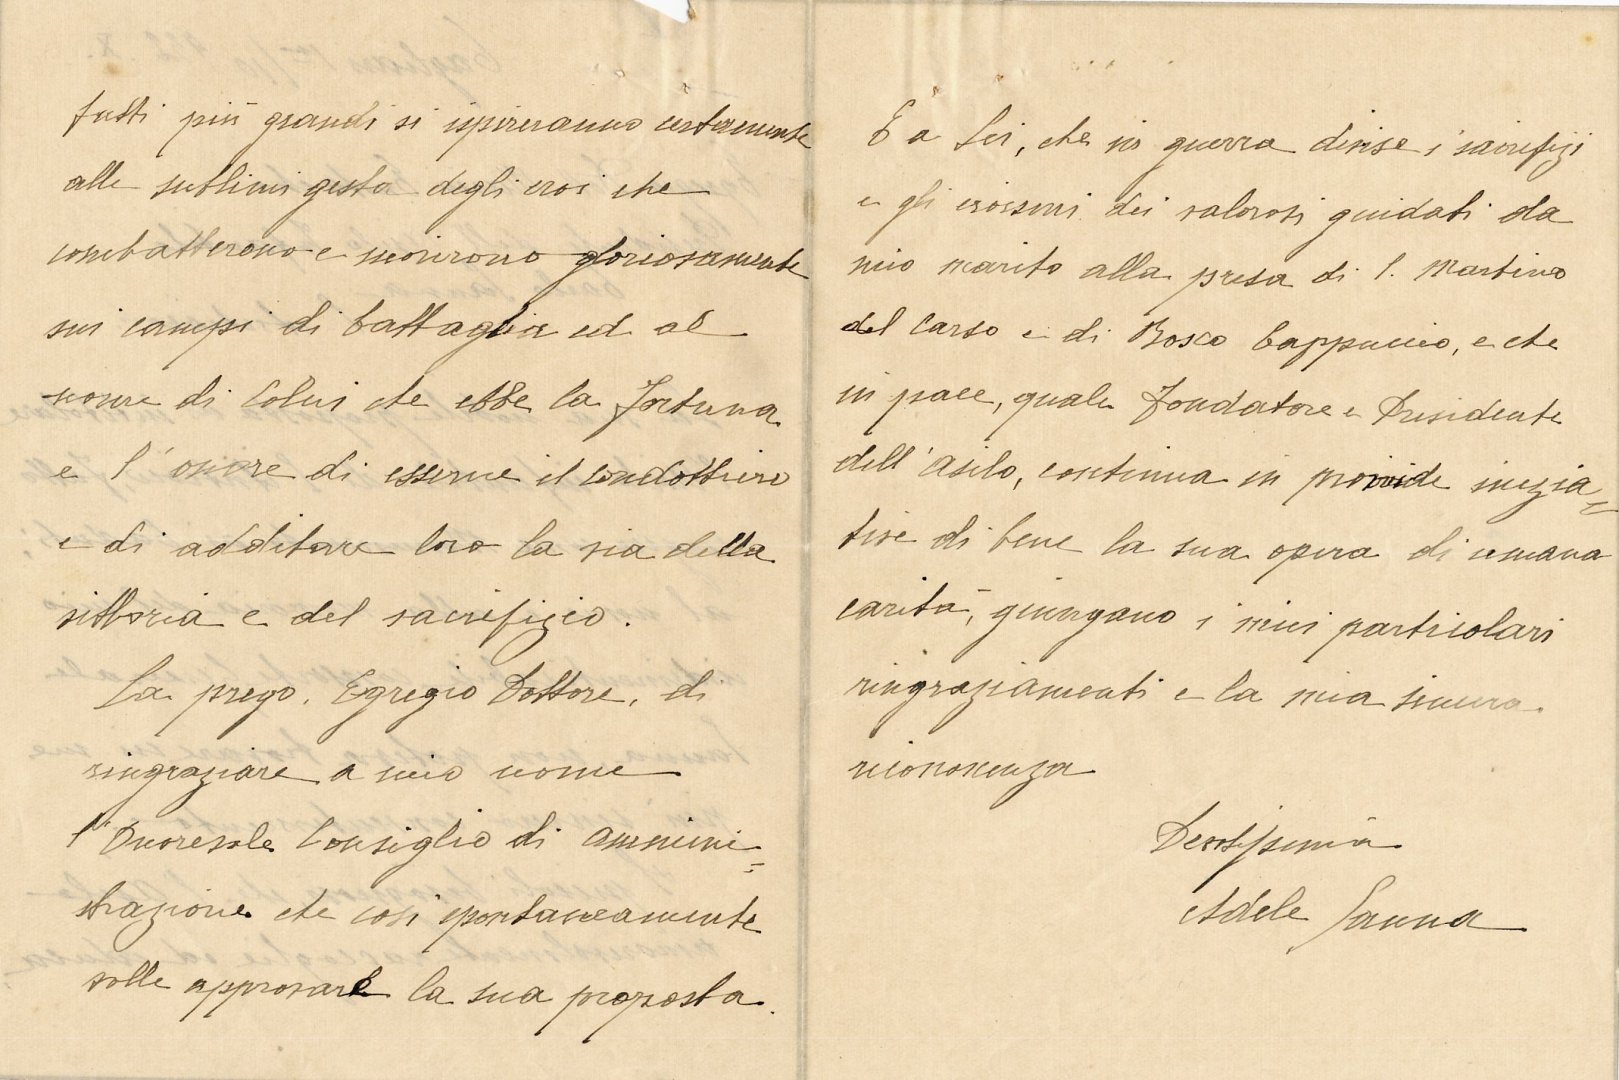 fatti più grandi si ispireranno certamente
alle sublimi gesta degli eroi che
combatterono e morirono gloriosamente
sui campi di battaglia ed al
nome di Colui che ebbe la fortuna
e l'onore di esserne il condottiero
e di additare loro la via della
vittoria e del sacrifizio.
La prego, Egregio Dottore, di
ringraziare a mio nome
l'Onorevole Consiglio di Ammini=
strazione che così spontaneamente
volle approvare la sua proposta.
E a Lei, che in guerra divise i sacrifizi
e gli eroismi dei valorosi guidati da
mio marito alla presa di S. Martino
del Carso e di Bosco Cappuccio, e che
in pace, quale Fondatore e Presidente
dell'Asilo, continua in provvide inizia=
tive di bene la sua opera di umana
carità, giungano i miei particolari
ringraziamenti e la mia sincera
riconoscenza
Devotissima
Adele Sanna